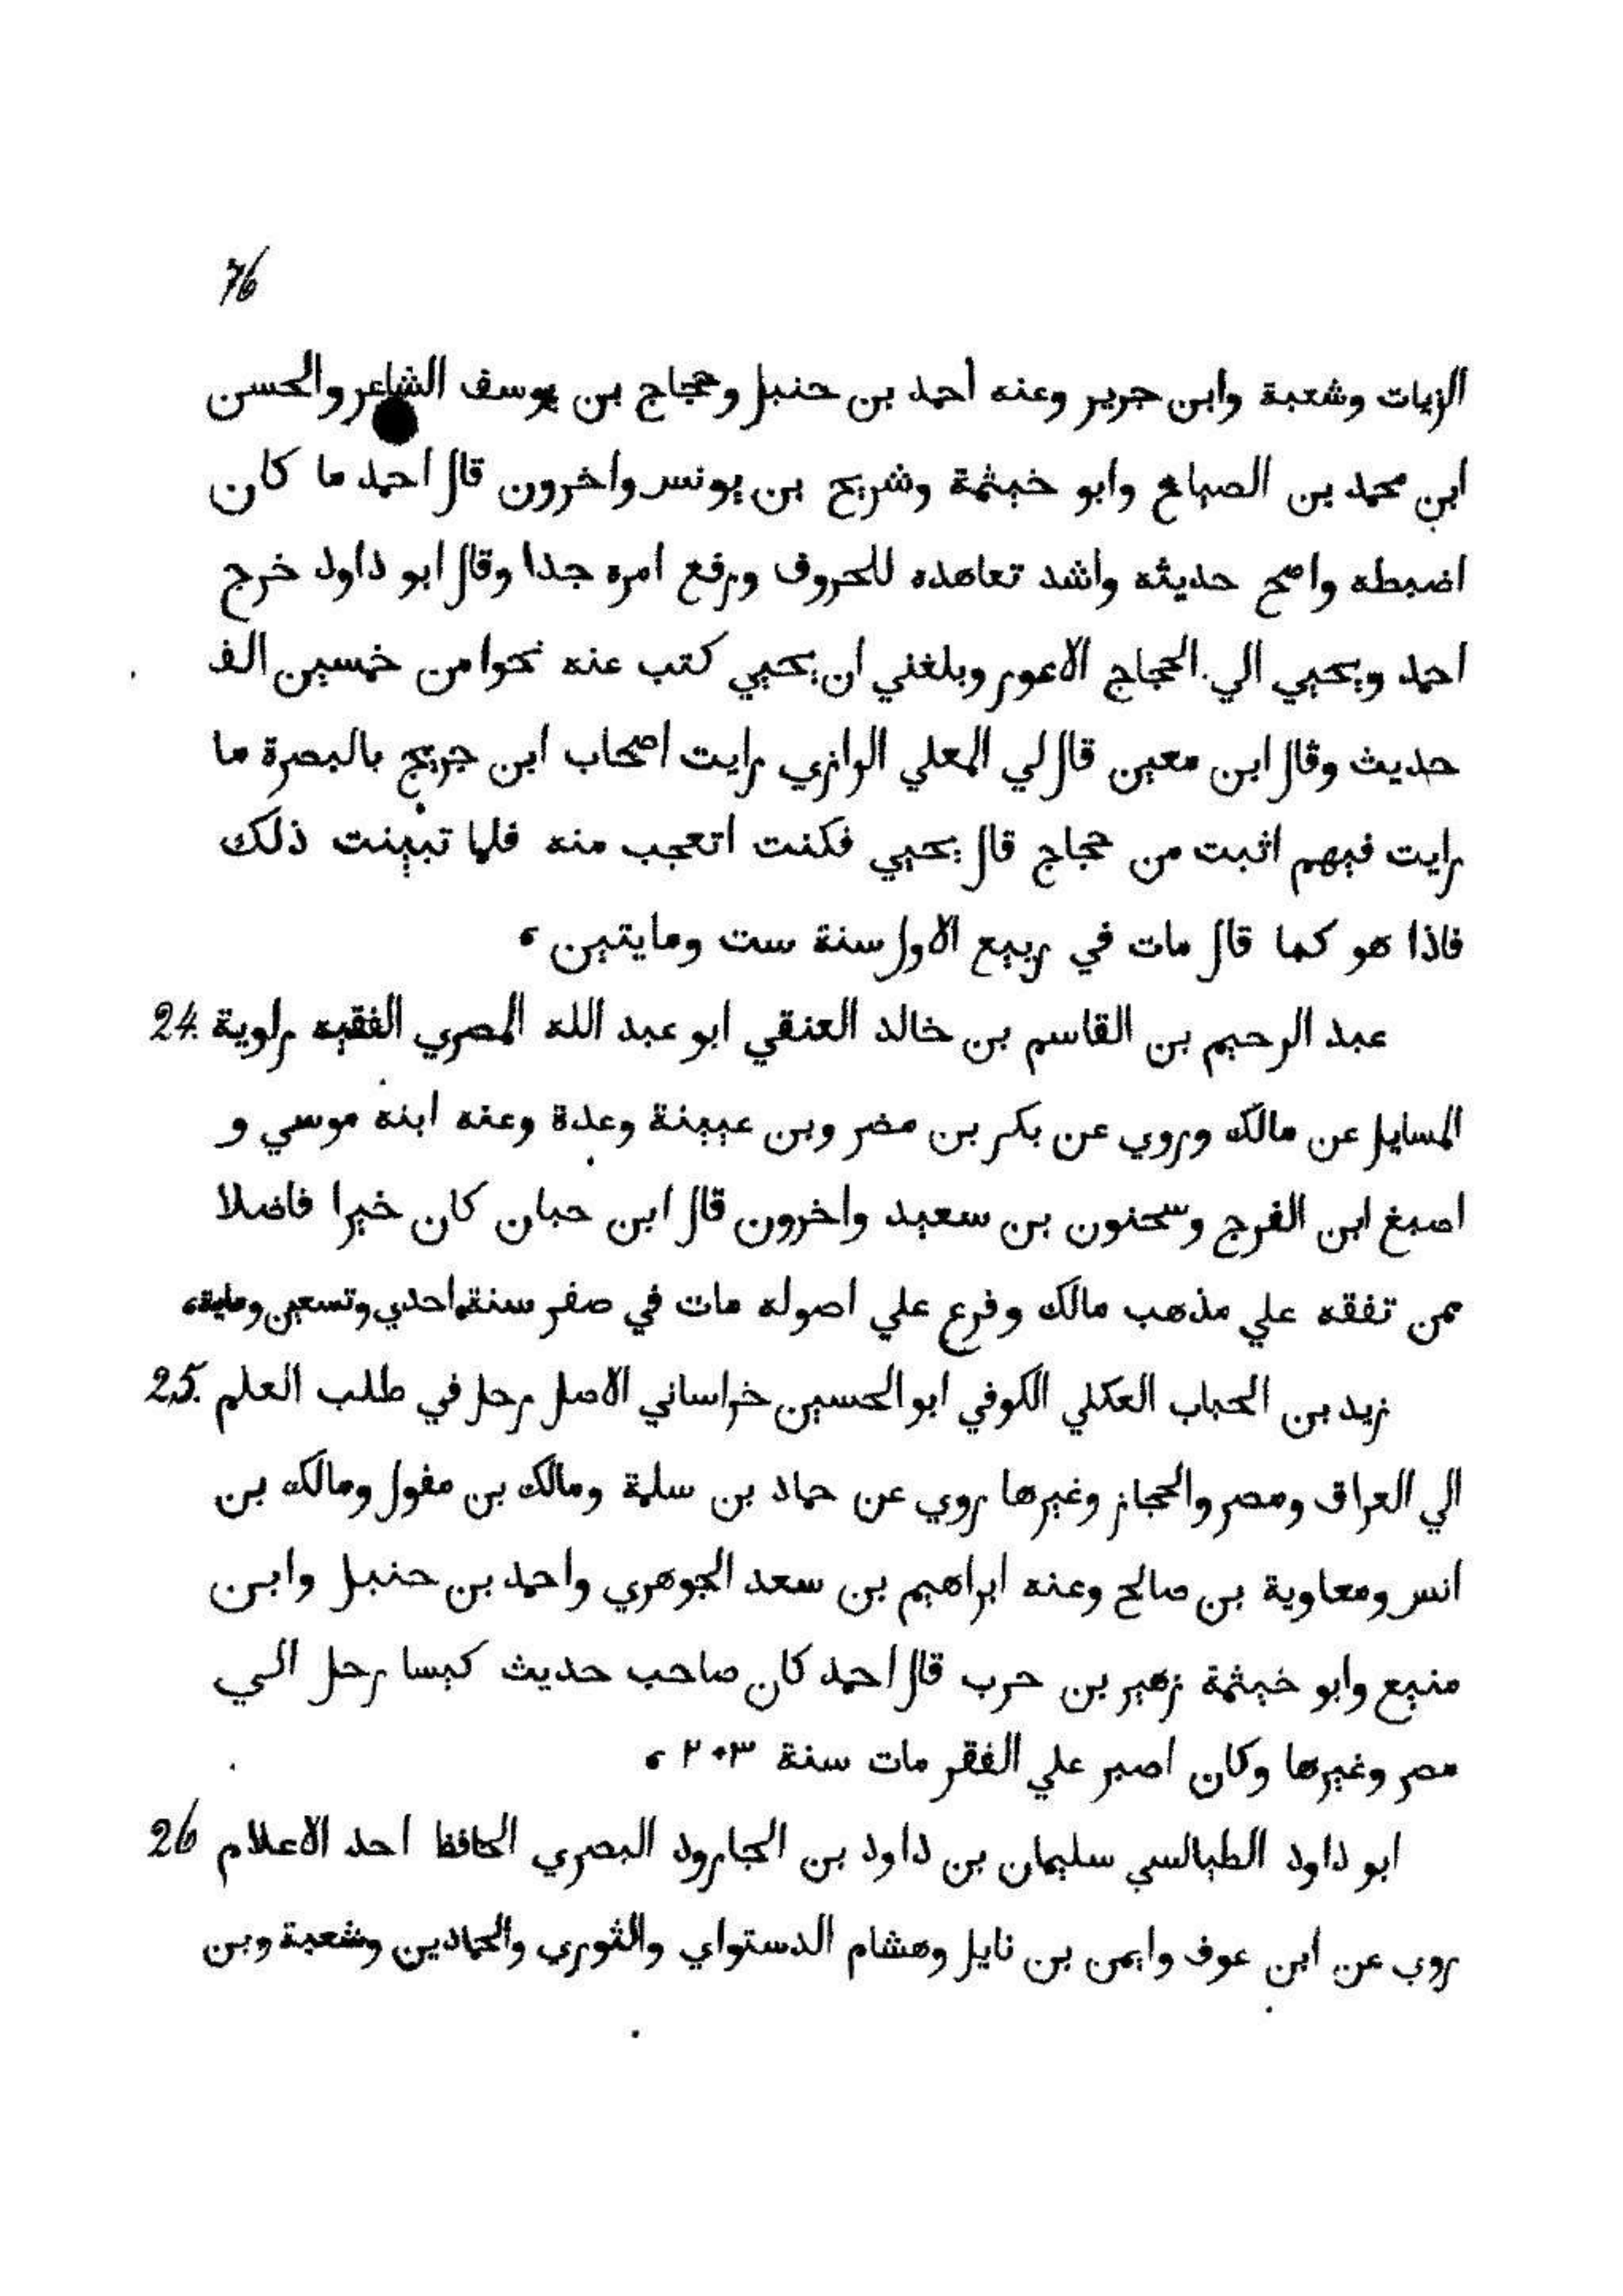 76
الزيات وشعبة وابن جرير وعنه أحمد بن حنبل وحجاج بن يوسف الشاعر والحسن
ابن محمد بن الصباح وابو خيثمة وشريح بن يونس واخرون قال احمد ما كان
اضبطه واصح حديثه واشد تعاهده للحروف ورفع امره جدا وقال ابو داود خرج
احمد ويحيي الي الحجاج الاعور وبلغني ان يحيي كتب عنه نحوا من خمسين الف
حديث وقال ابن معين قال لي المعلي الرازي رايت اصحاب ابن جريج بالبصرة ما
رايت فيهم اثبت من حجاج قال يحيي فكنت اتعجب منه فلما تبينت ذلك
فاذا هو كما قال مات في ربيع الاول سنة ست ومايتين ،
عبد الرحيم بن القاسم بن خالد العنقي ابو عبد الله المصري الفقيه راوية 24.
المسايل عن مالك وروي عن بكر بن مضر وبن عيينة وعدة وعنه ابنه موسي و
اصبغ ابن الفرج وسحنون بن سعيد واخرون قال ابن حبان كان خيرا فاضلا
ممن تفقه علي مذهب مالك وفرع علي اصوله مات في صفر سنة احدي وتسعين وماية،
زيد بن الحباب العكلي الكوفي ابو الحسين خراساني الاصل رحل في طلب العلم 25.
الي العراق ومصر والحجاز وغيرها روي عن حماد بن سلمة ومالك بن مغول ومالك بن
انس ومعاوية بن صالح وعنه ابراهيم بن سعد الجوهري واحمد بن حنبل وابن
منيع وابو خيثمة زهير بن حرب قال احمد كان صاحب حديث كيسا رحل الي
مصر وغيرها وكان اصبر علي الفقر مات سنة ٢٠٣ ،
ابو داود الطيالسي سليمان بن داود بن الجارود البصري الحافظ احد الاعلام 26
روي عن ابن عوف وايمن بن نايل وهشام الدستواي والثوري والحمادين وشعبة وبن